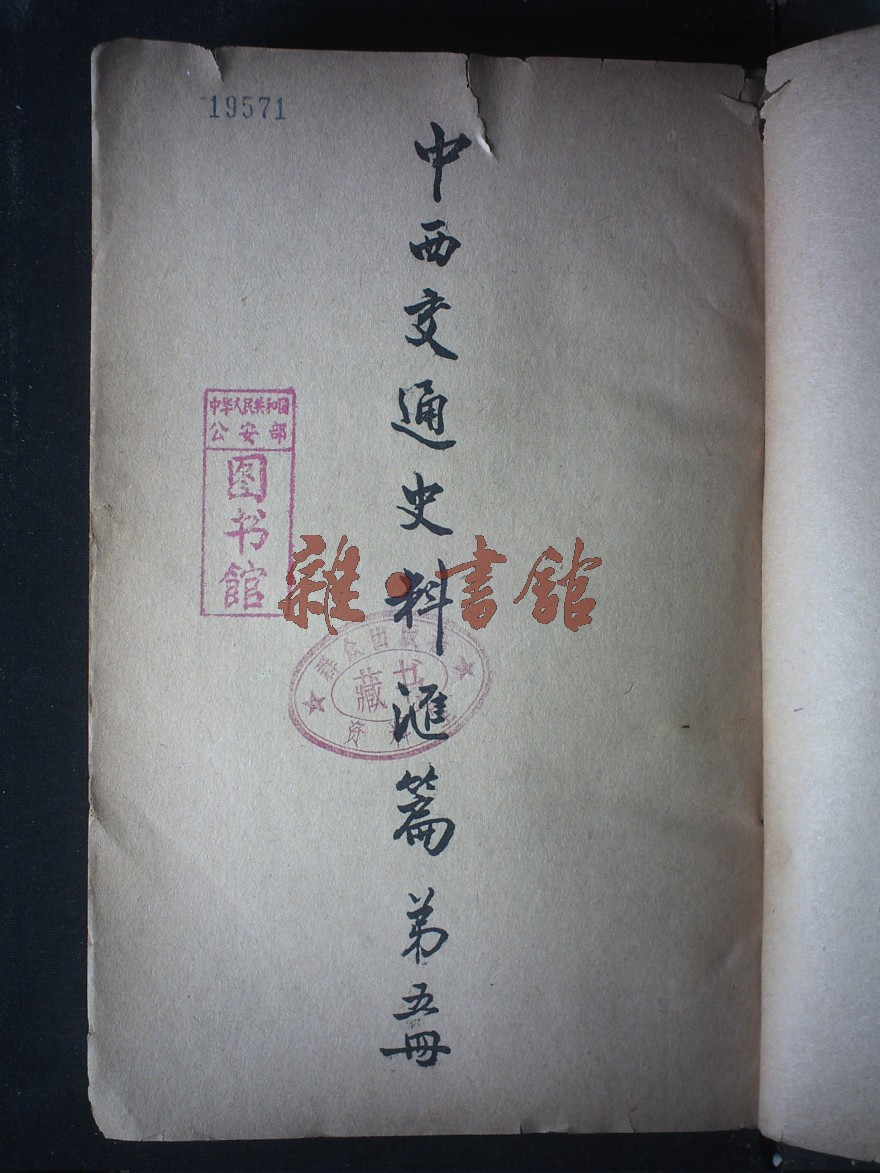 19571
中西交通史料滙篇第五冊
中华人民共和国
公安部
图书馆
雜·書館
群众出版社
藏书
资料